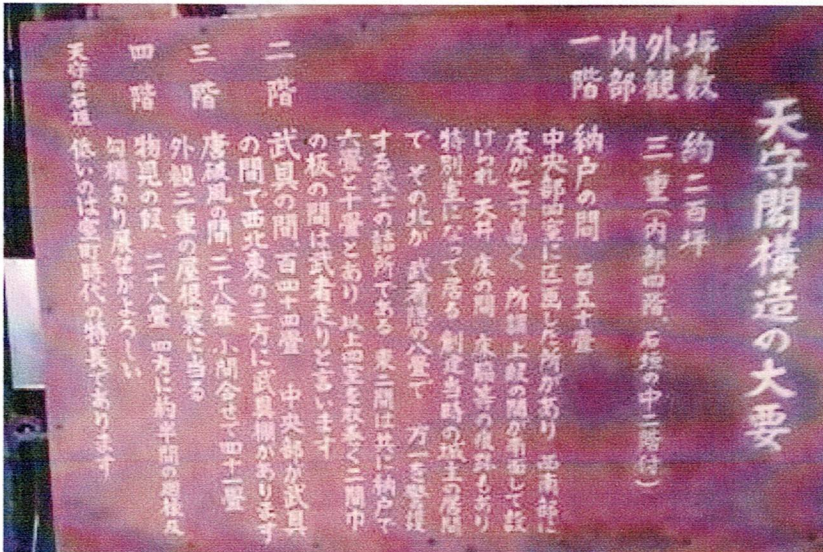 天守閣構造の大要
坪数 約二百坪
外観 三重(内部四階、石垣の中二階付)
内部
一階 納戸の間 百五十畳
中央部四室に区画した所があり 西南部に
床が七寸高く 所謂上段の間が南面して設
けられ 天井 床の間 床脇等の後跡もあり
特別室になって居る 創定当時の城主の居間
で その北が 武者隠の八畳で 万一を警護
する武士の詰所である 東二間は共に納戸で
六畳と十畳とあり 以上四室を取巻く二間巾
の板の間は武者走りと言います
二階 武具の間、百四十四畳 中央部が武具
の間で西北東の三方に武具棚があります
三階 唐破風の間、二十八畳 小間合せて四十一畳
外観二重の屋根裏に当る
四階 物見の段、二十八畳 四方に約半間の廻椽及
勾欄あり展望がよろしい
天守の石垣 低いのは室町時代の特長であります